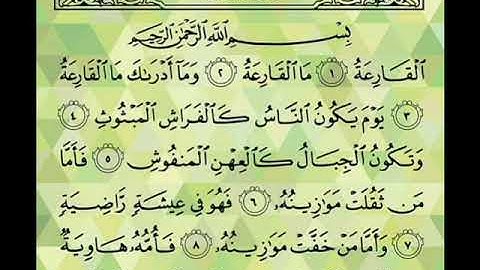 بِسْمِ اللَّهِ الرَّحْمَٰنِ الرَّحِيمِ
الْقَارِعَةُ ١ مَا الْقَارِعَةُ ٢ وَمَا أَدْرَاكَ مَا الْقَارِعَةُ
٣ يَوْمَ يَكُونُ النَّاسُ كَالْفَرَاشِ الْمَبْثُوثِ ٤
وَتَكُونُ الْجِبَالُ كَالْعِهْنِ الْمَنفُوشِ ٥ فَأَمَّا
مَن ثَقُلَتْ مَوَازِينُهُ ٦ فَهُوَ فِي عِيشَةٍ رَّاضِيَةٍ
٧ وَأَمَّا مَنْ خَفَّتْ مَوَازِينُهُ ٨ فَأُمُّهُ هَاوِيَةٌ